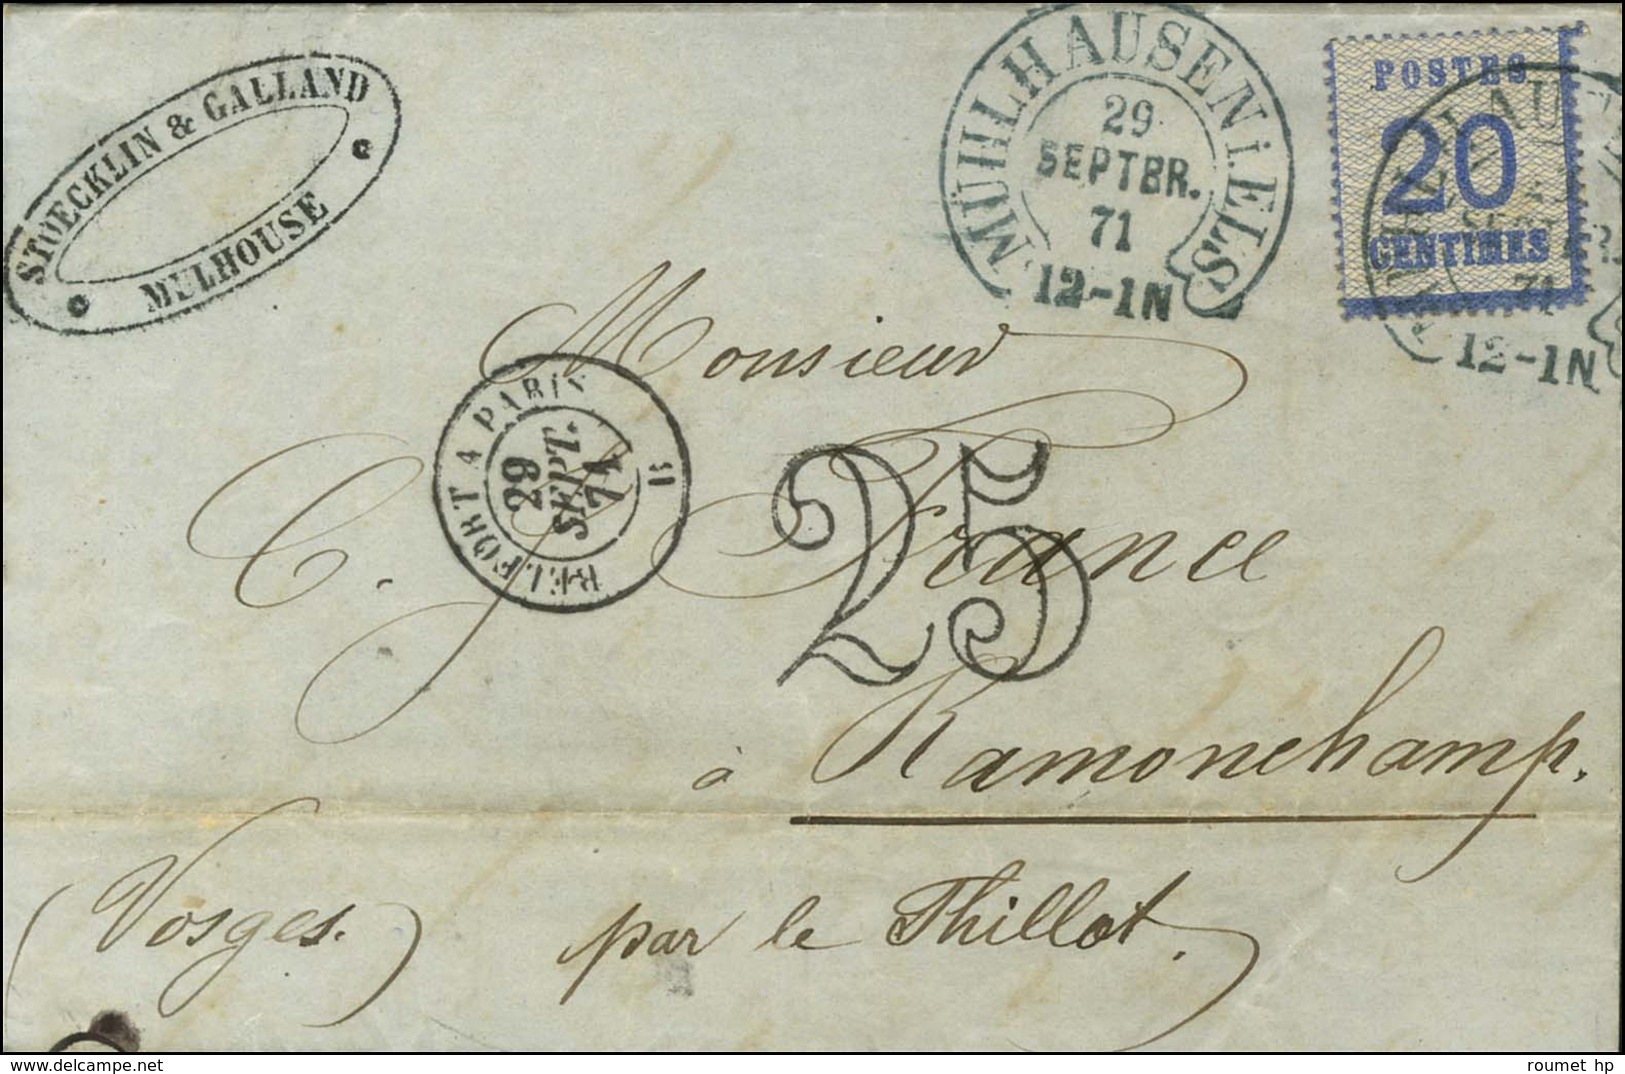 STOECKLIN & GALLAND
MULHOUSE
MÜHLHAUSEN i. ELS
29
SEPTBR.
71
12-1N
POSTES
20
CENTIMES
71
12-1N
Monsieur
BELFORT A PARIS
29
SEPT.
71
C. France
25
à Ramonchamp.
(Vosges.) par le Thillot.
roumet hp